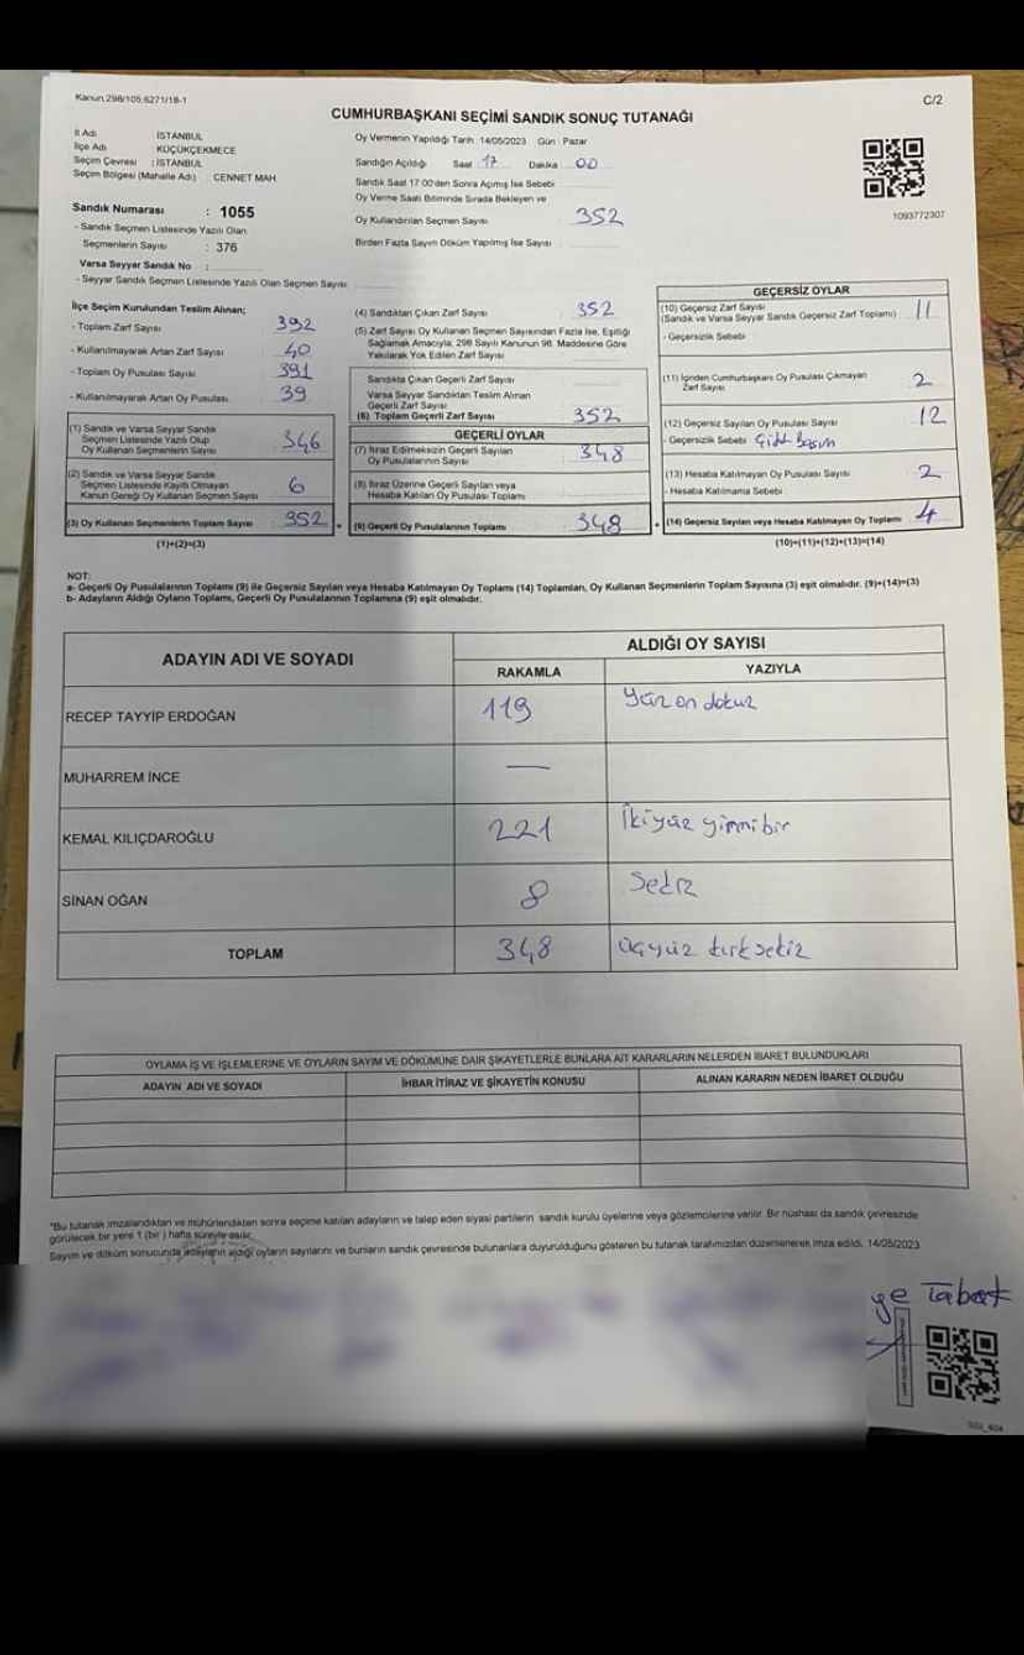 Kanun 298/105,6271/18-1
C/2
CUMHURBAŞKANI SEÇİMİ SANDIK SONUÇ TUTANAĞI
İl Adı İSTANBUL
İlçe Adı KÜÇÜKÇEKMECE
Seçim Çevresi : İSTANBUL
Seçim Bölgesi (Mahalle Adı) CENNET MAH.
Sandık Numarası : 1055
- Sandık Seçmen Listesinde Yazılı Olan
Seçmenlerin Sayısı : 376
Varsa Seyyar Sandık No :
- Seyyar Sandık Seçmen Listesinde Yazılı Olan Seçmen Sayısı
Oy Vermenin Yapıldığı Tarih 14/05/2023 Gün Pazar
Sandığın Açıldığı Saat 17 Dakika 00
Sandık Saat 17.00'den Sonra Açılmış İse Sebebi
Oy Verme Saati Bitiminde Sırada Bekleyen ve
Oy Kullandırılan Seçmen Sayısı 352
Birden Fazla Sayım Döküm Yapılmış İse Sayısı
1093772307
İlçe Seçim Kurulundan Teslim Alınan;
- Toplam Zarf Sayısı 392
- Kullanılmayarak Artan Zarf Sayısı 40
- Toplam Oy Pusulası Sayısı 391
- Kullanılmayarak Artan Oy Pusulası 39
(1) Sandık ve Varsa Seyyar Sandık
Seçmen Listesinde Yazılı Olup
Oy Kullanan Seçmenlerin Sayısı 346
(2) Sandık ve Varsa Seyyar Sandık
Seçmen Listesinde Kayıtlı Olmayan
Kanun Gereği Oy Kullanan Seçmen Sayısı 6
(3) Oy Kullanan Seçmenlerin Toplam Sayısı 352
(1)+(2)=(3)
(4) Sandıktan Çıkan Zarf Sayısı 352
(5) Zarf Sayısı Oy Kullanan Seçmen Sayısından Fazla İse, Eşitliği
Sağlamak Amacıyla, 298 Sayılı Kanunun 98. Maddesine Göre
Yakılarak Yok Edilen Zarf Sayısı
Sandıkta Çıkan Geçerli Zarf Sayısı
Varsa Seyyar Sandıktan Teslim Alınan
Geçerli Zarf Sayısı
(6) Toplam Geçerli Zarf Sayısı 352
GEÇERLİ OYLAR
(7) İtiraz Edilmeksizin Geçerli Sayılan
Oy Pusulalarının Sayısı 348
(8) İtiraz Üzerine Geçerli Sayılan veya
Hesaba Katılan Oy Pusulası Toplamı
(9) Geçerli Oy Pusulalarının Toplamı 348
GEÇERSİZ OYLAR
(10) Geçersiz Zarf Sayısı
(Sandık ve Varsa Seyyar Sandık Geçersiz Zarf Toplamı) 11
- Geçersizlik Sebebi
(11) İçinden Cumhurbaşkanı Oy Pusulası Çıkmayan
Zarf Sayısı 2
(12) Geçersiz Sayılan Oy Pusulası Sayısı 12
- Geçersizlik Sebebi
(13) Hesaba Katılmayan Oy Pusulası Sayısı 2
- Hesaba Katılmama Sebebi
(14) Geçersiz Sayılan veya Hesaba Katılmayan Oy Toplamı 4
(10)+(11)+(12)+(13)=(14)
NOT:
a- Geçerli Oy Pusulalarının Toplamı (9) ile Geçersiz Sayılan veya Hesaba Katılmayan Oy Toplamı (14) Toplamları, Oy Kullanan Seçmenlerin Toplam Sayısına (3) eşit olmalıdır. (9)+(14)=(3)
b- Adayların Aldığı Oyların Toplamı, Geçerli Oy Pusulalarının Toplamına (9) eşit olmalıdır.
ADAYIN ADI VE SOYADI
ALDIĞI OY SAYISI
RAKAMLA YAZIYLA
RECEP TAYYİP ERDOĞAN 119 Yüz on dokuz
MUHARREM İNCE —
KEMAL KILIÇDAROĞLU 221 İkiyüz yirmibir
SİNAN OĞAN 8 Sekiz
TOPLAM 348 üçyüz kırksekiz
OYLAMA İŞ VE İŞLEMLERİNE VE OYLARIN SAYIM VE DÖKÜMÜNE DAİR ŞİKAYETLERLE BUNLARA AİT KARARLARIN NELERDEN İBARET BULUNDUKLARI
ADAYIN ADI VE SOYADI İHBAR İTİRAZ VE ŞİKAYETİN KONUSU ALINAN KARARIN NEDEN İBARET OLDUĞU
*Bu tutanak imzalandıktan ve mühürlendikten sonra seçime katılan adayların ve talep eden siyasi partilerin sandık kurulu üyelerine veya gözlemcilerine verilir. Bir nüshası da sandık çevresinde
görülecek bir yere 1 (bir) hafta süreyle asılır.
Sayım ve döküm sonucunda adayların aldığı oyların sayılarını ve bunların sandık çevresinde bulunanlara duyurulduğunu gösteren bu tutanak tarafımızdan düzenlenerek imza edildi. 14/05/2023